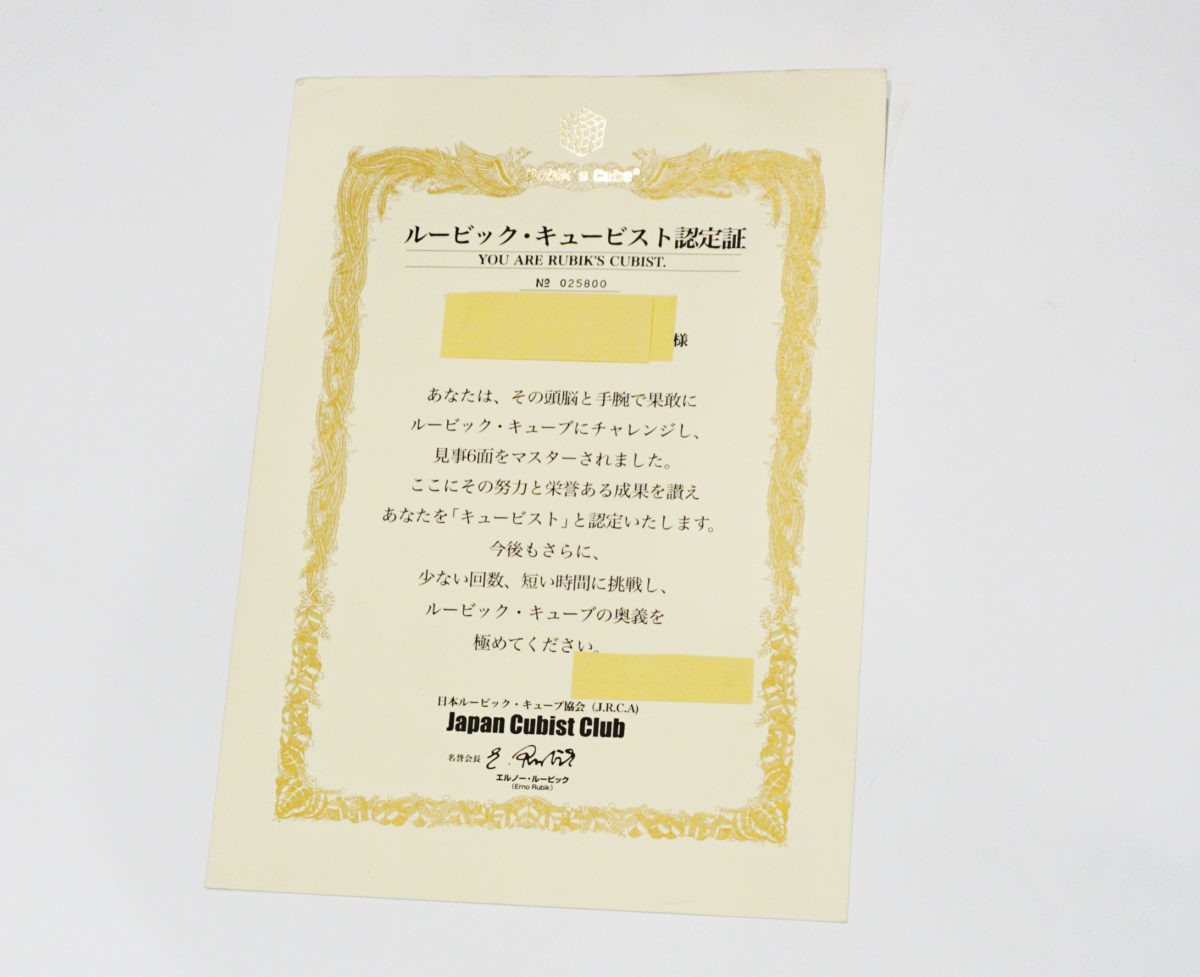 Rubik's Cube®
ルービック・キュービスト認定証
YOU ARE RUBIK'S CUBIST.
№ 025800
様
あなたは、その頭脳と手腕で果敢に
ルービック・キューブにチャレンジし、
見事6面をマスターされました。
ここにその努力と栄誉ある成果を讃え
あなたを「キュービスト」と認定いたします。
今後もさらに、
少ない回数、短い時間に挑戦し、
ルービック・キューブの奥義を
極めてください。
日本ルービック・キューブ協会（J.R.C.A）
Japan Cubist Club
名誉会長 E. Rubik
エルノー・ルービック
（Erno Rubik）